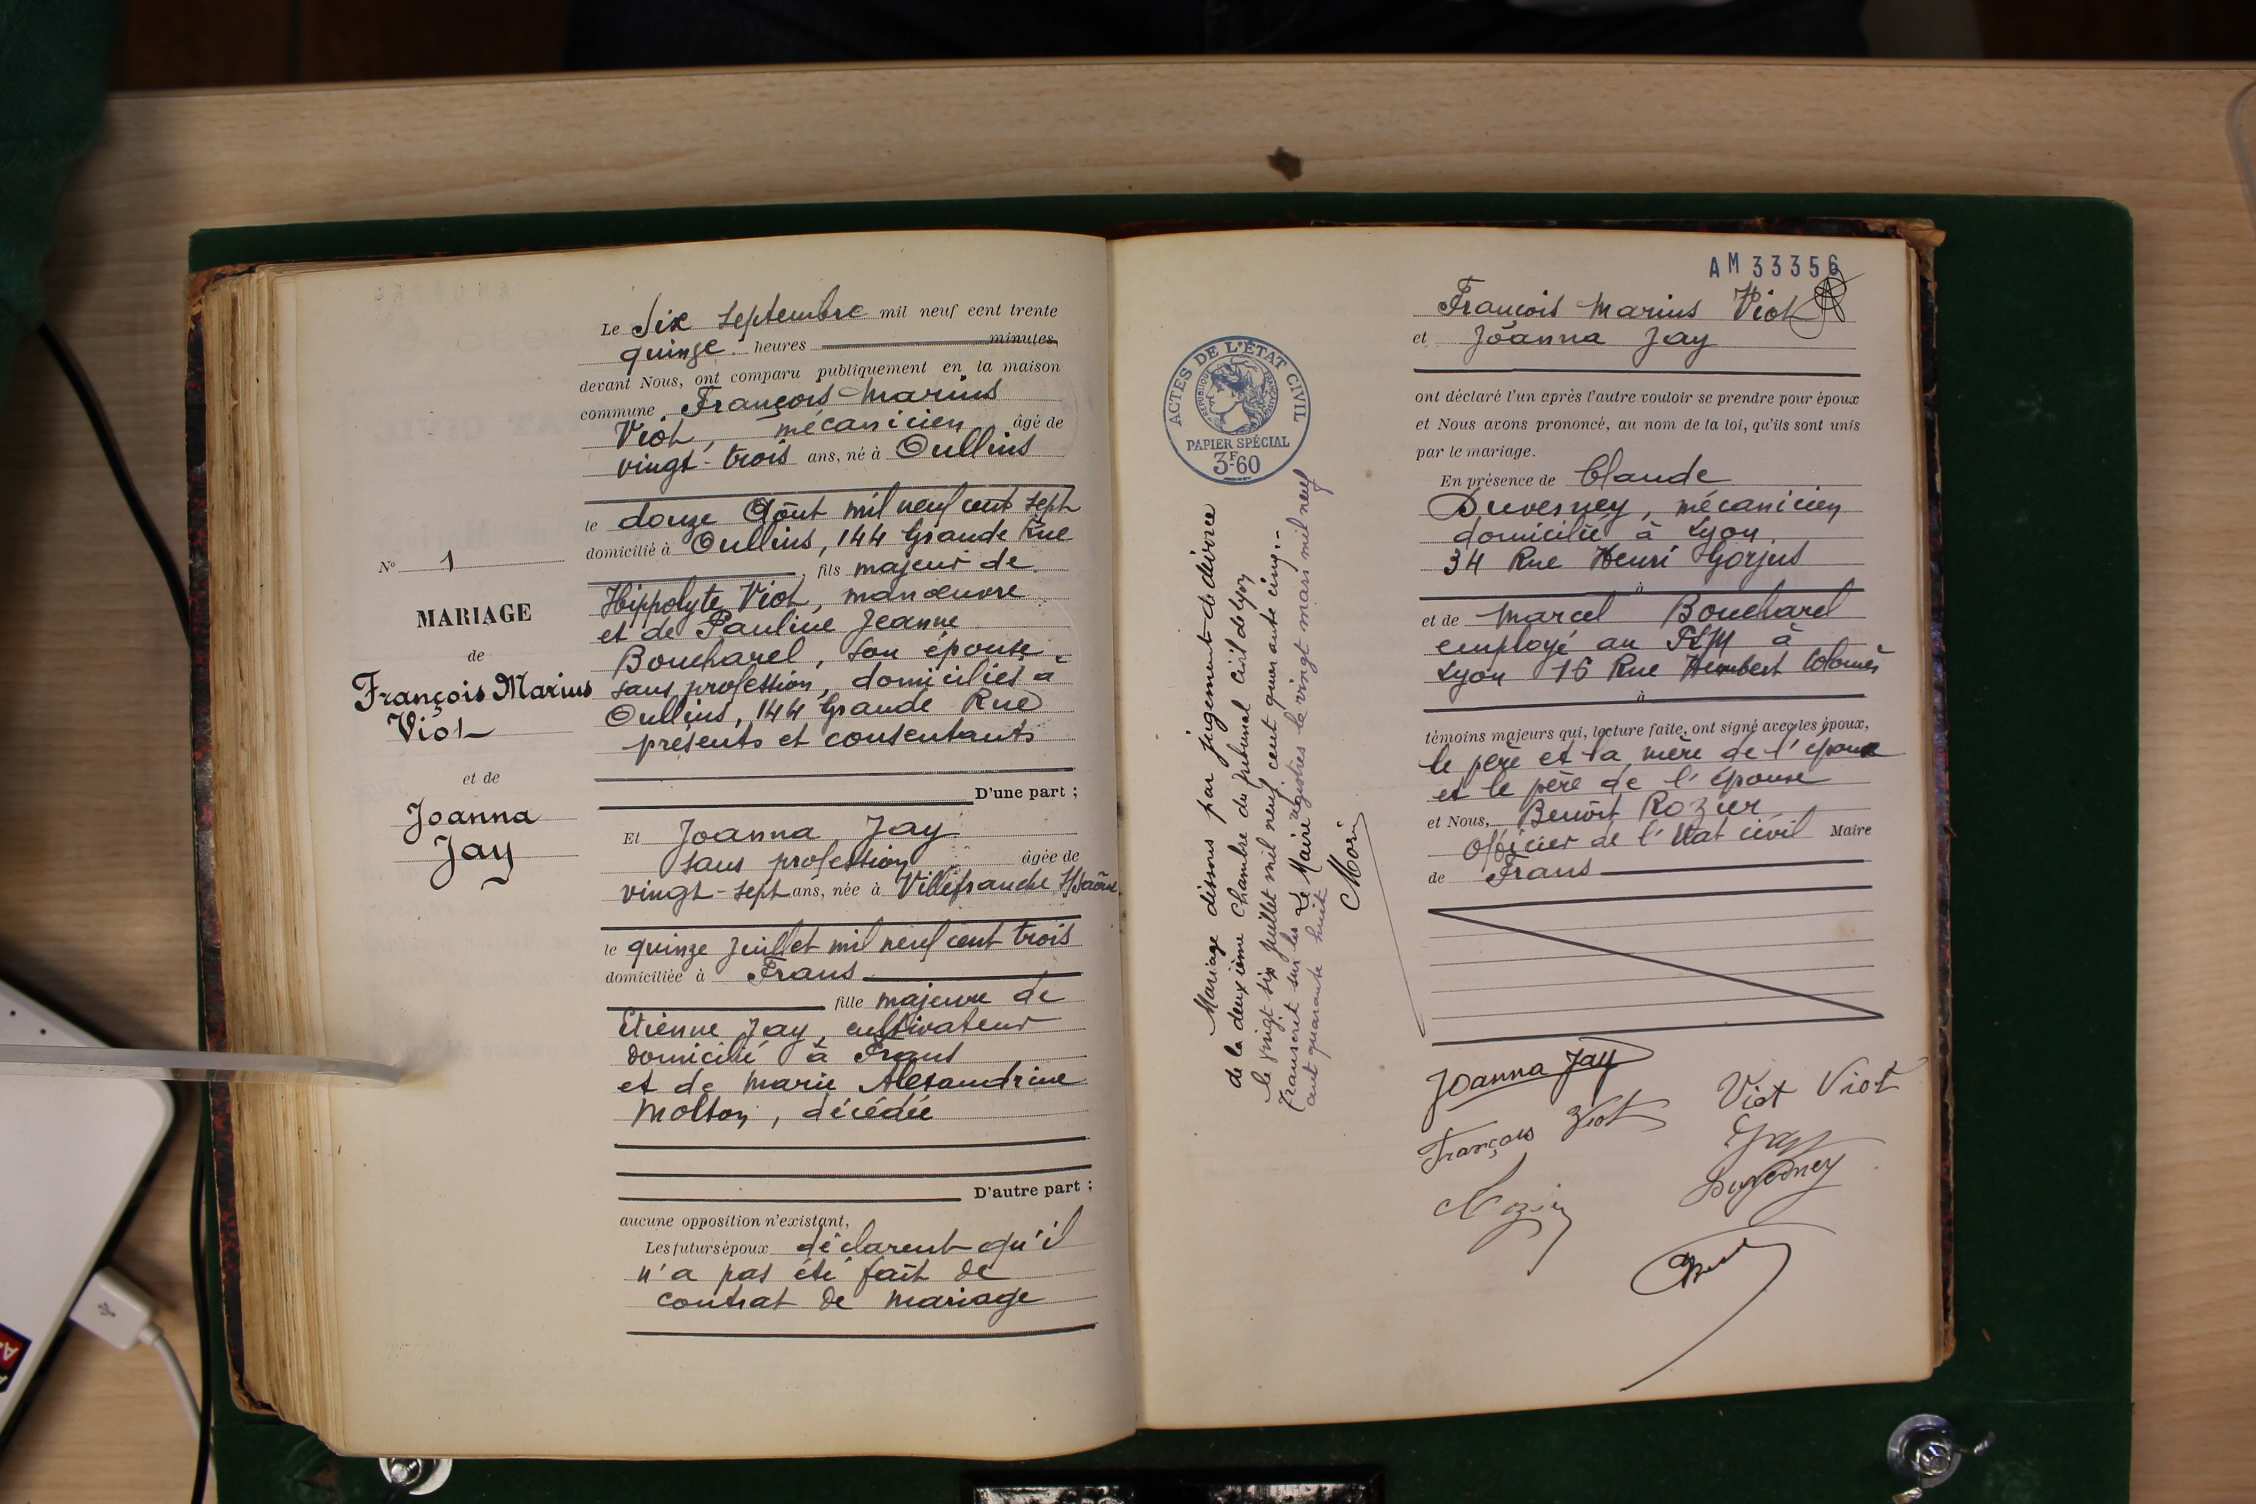 Le Six Septembre mil neuf cent trente
quinze heures minutes
devant Nous, ont comparu publiquement en la maison
commune François Marius
Viot, mécanicien âgé de
vingt-trois ans, né à Oullins
le douze Août mil neuf cent sept
domicilié à Oullins, 144 Grande Rue
fils majeur de
Hippolyte Viot, manœuvre
et de Pauline Jeanne
Boucharel, son épouse
sans profession, domiciliés à
Oullins, 144 Grande Rue
présents et consentants
D'une part ;
Et Joanna Jay
sans profession âgée de
vingt-sept ans, née à Villefranche S/Saône
le quinze Juillet mil neuf cent trois
domiciliée à Frans
fille majeure de
Etienne Jay, cultivateur
domicilié à Frans
et de Marie Alexandrine
Molton, décédée
D'autre part ;
aucune opposition n'existant,
Les futurs époux déclarent qu'il
n'a pas été fait de
contrat de mariage
No 1
MARIAGE
de
François Marius
Viot
et de
Joanna
Jay
AM 33356
ACTES DE L'ÉTAT CIVIL
PAPIER SPÉCIAL
3F60
Mariage dissous par jugement de divorce
de la deuxième Chambre du Tribunal civil de Lyon
le vingt six juillet mil neuf cent quarante cinq.-
Transcrit sur les registres le vingt mars mil neuf
cent quarante huit Le Maire
Morin
François Marius Viot
et Joanna Jay
ont déclaré l'un après l'autre vouloir se prendre pour époux
et Nous avons prononcé, au nom de la loi, qu'ils sont unis
par le mariage.
En présence de Claude
Duverney, mécanicien
domicilié à Lyon
34 Rue Henri Gorjus
à
et de Marcel Boucharel
employé au PLM à
Lyon 16 Rue Humbert Colomès
à
témoins majeurs qui, lecture faite, ont signé avec les époux,
le père et la mère de l'époux
et le père de l'épouse
et Nous, Benoît Rozier
Officier de l'Etat civil Maire
de Frans
Joanna Jay
François Viot Viot Viot
Jay
Duverney
Rozier